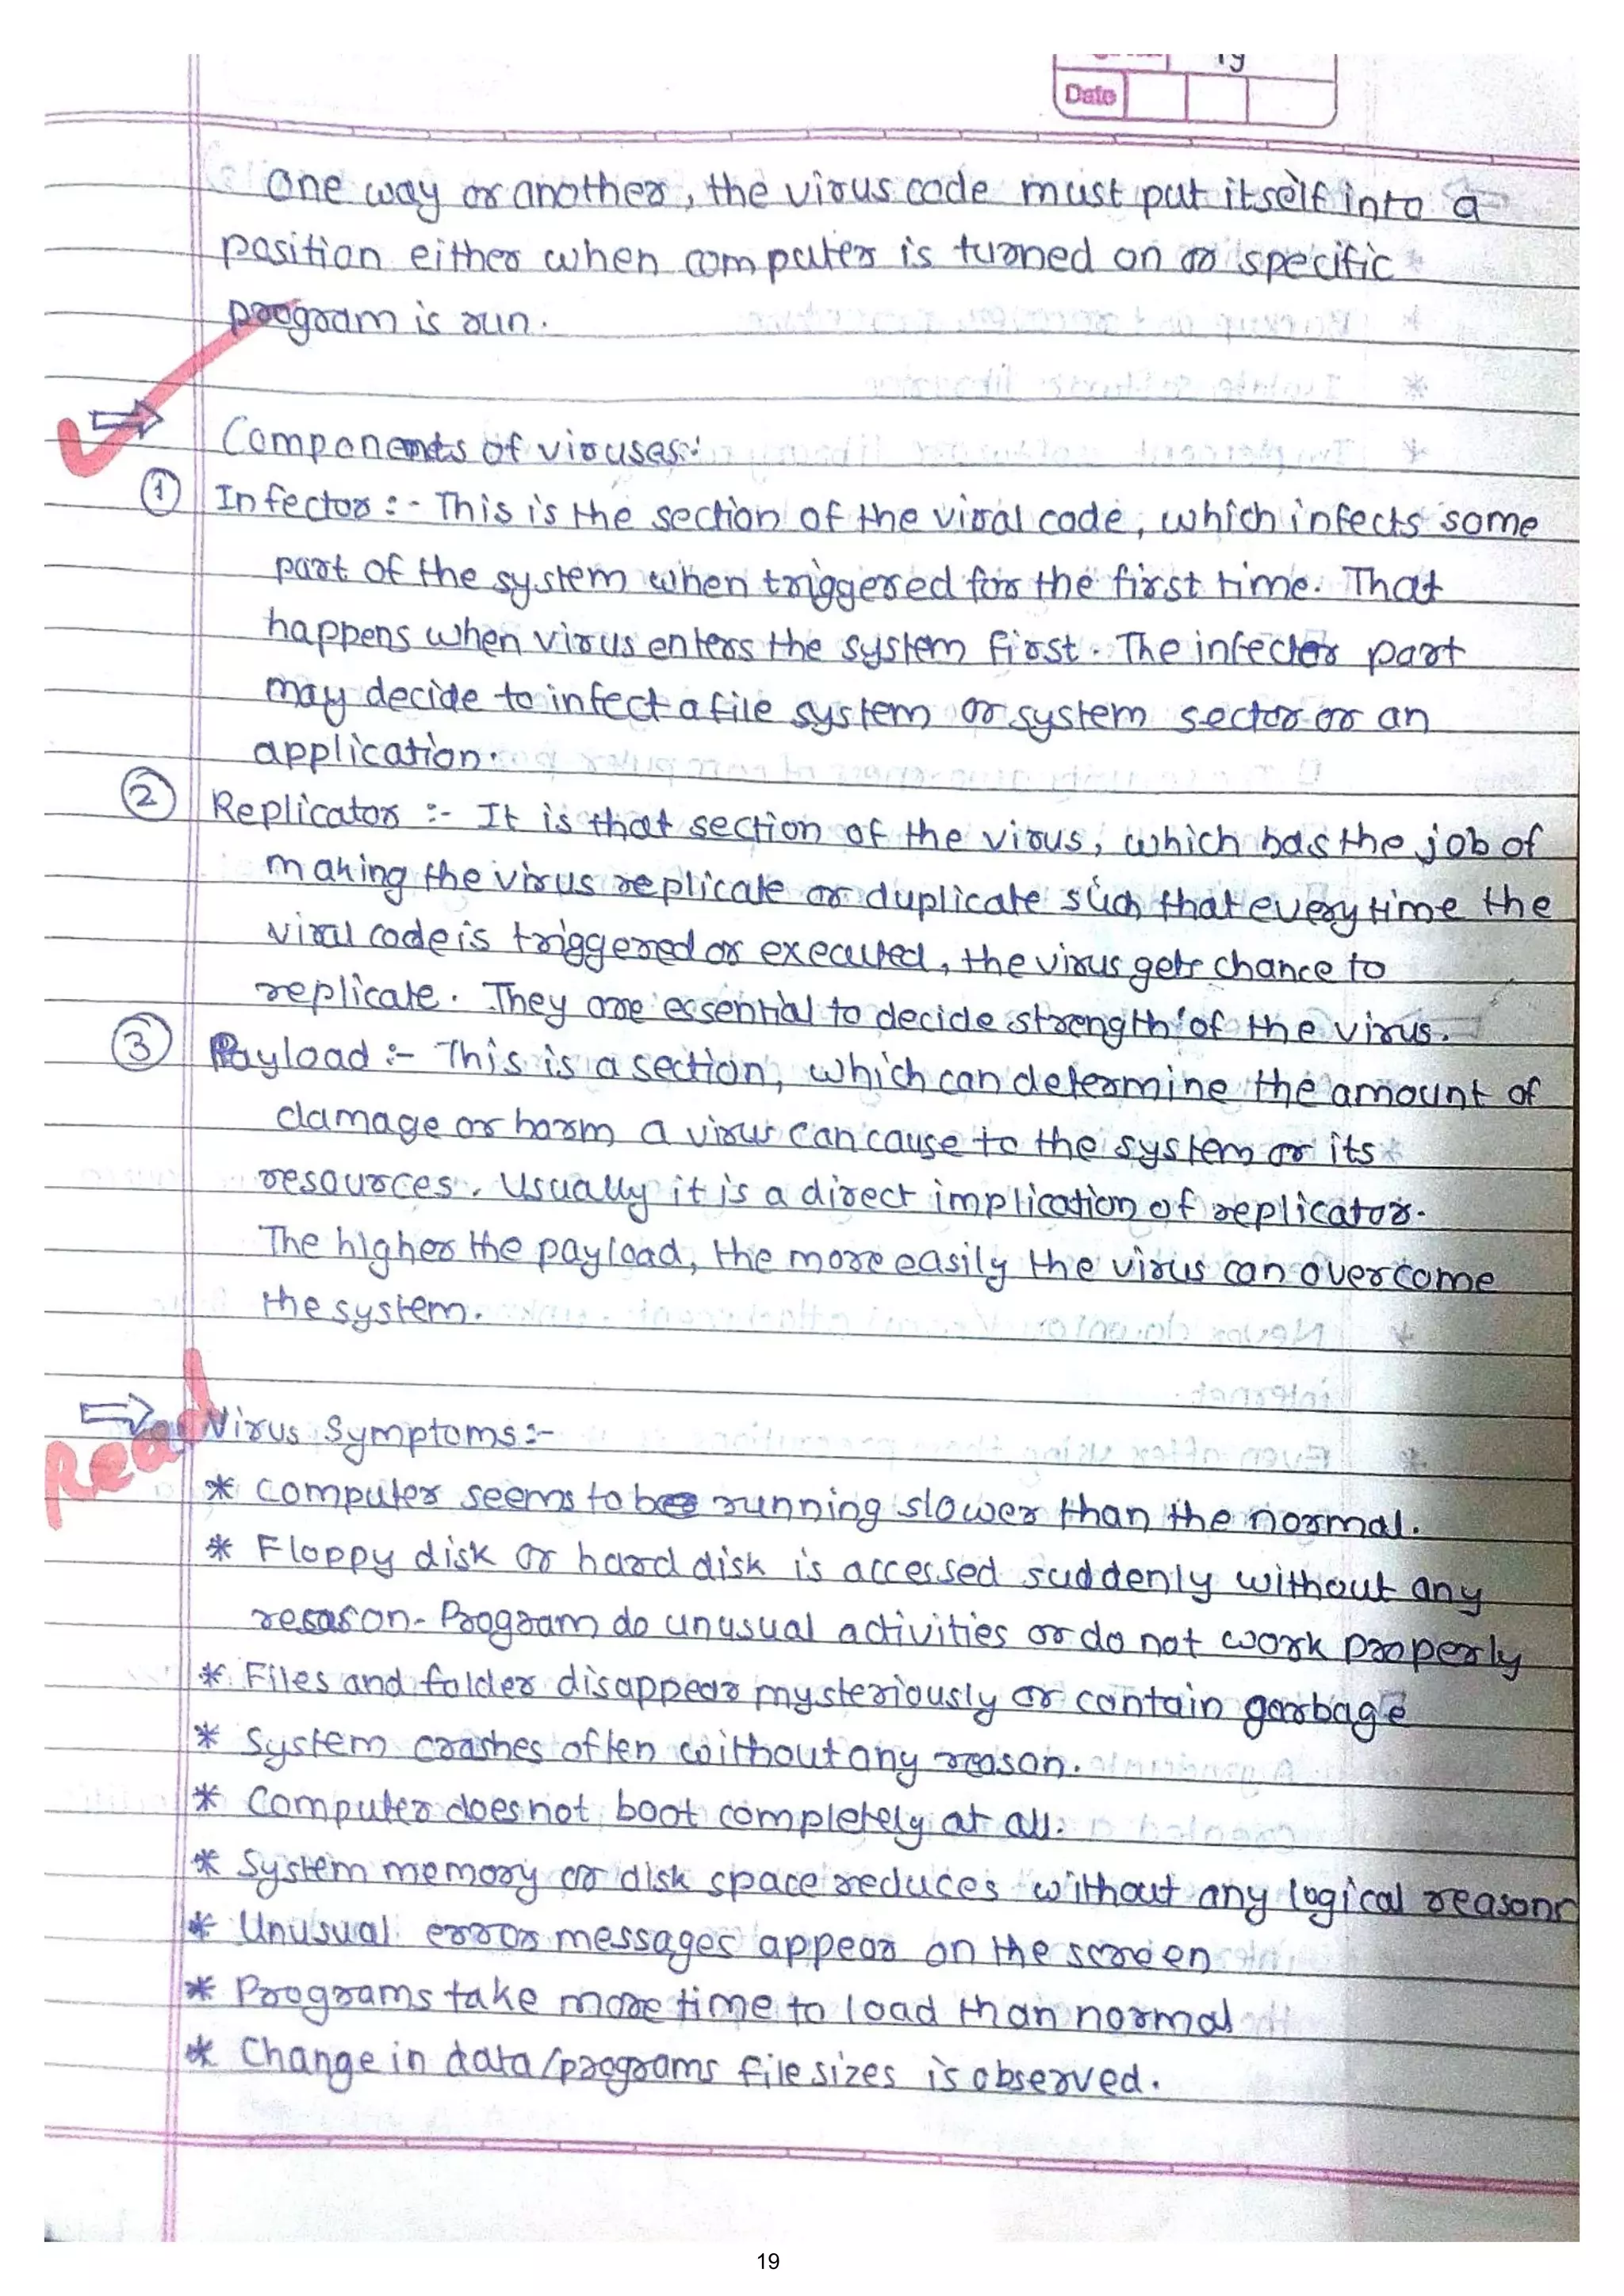 19
Date
One way or another, the virus code must put itself into a
position either when computer is turned on or specific
program is run.
⇒ Components of viruses:
① Infector :- This is the section of the viral code, which infects some
part of the system when triggered for the first time. That
happens when virus enters the system first. The infector part
may decide to infect a file system or system sector or an
application.
② Replicator :- It is that section of the virus, which has the job of
making the virus replicate or duplicate such that every time the
viral code is triggered or executed, the virus gets chance to
replicate. They are essential to decide strength of the virus.
③ Payload :- This is a section, which can determine the amount of
damage or harm a virus can cause to the system or its
resources. Usually it is a direct implication of replicator.
The higher the payload, the more easily the virus can overcome
the system.
Read
⇒ Virus Symptoms :-
* Computer seems to be running slower than the normal.
* Floppy disk or hard disk is accessed suddenly without any
reason. Program do unusual activities or do not work properly
* Files and folder disappear mysteriously or contain garbage
* System crashes often without any reason.
* Computer does not boot completely at all.
* System memory or disk space reduces without any logical reasons
* Unusual error messages appear on the screen
* Programs take more time to load than normal
* Change in data/programs file sizes is observed.
19